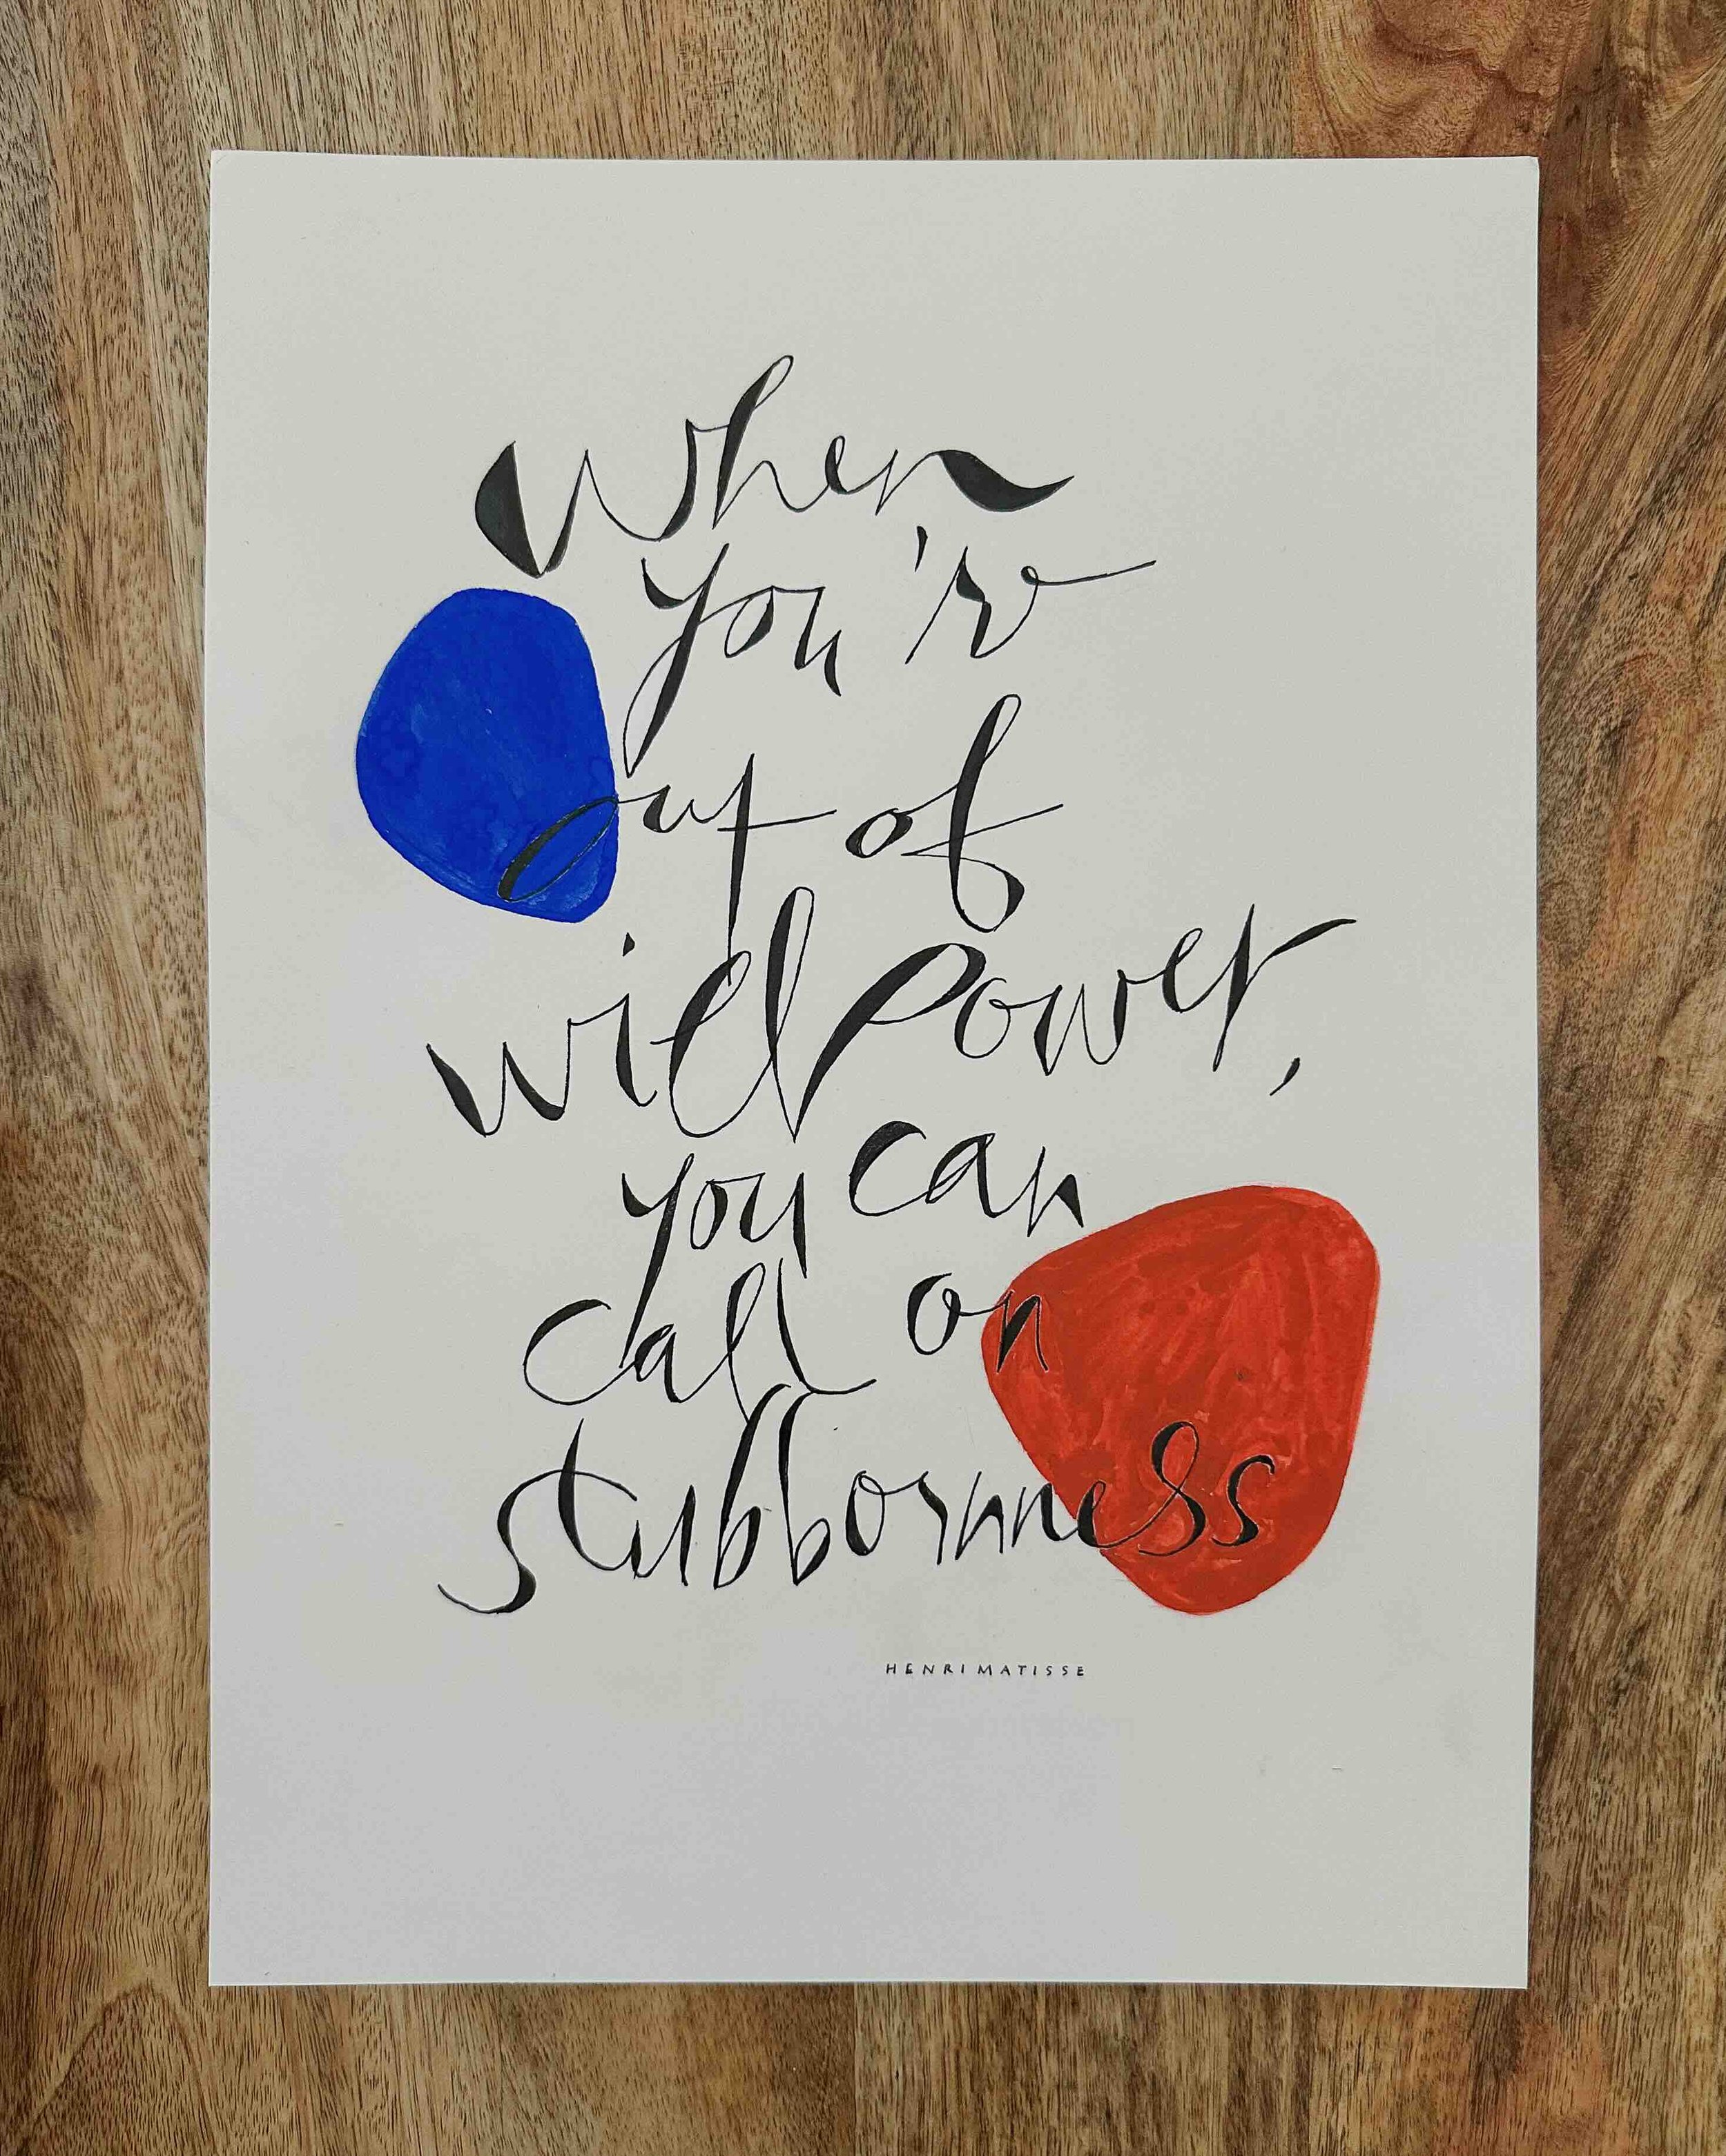 When
you're
out of
willpower,
you can
call on
stubbornness
HENRI MATISSE